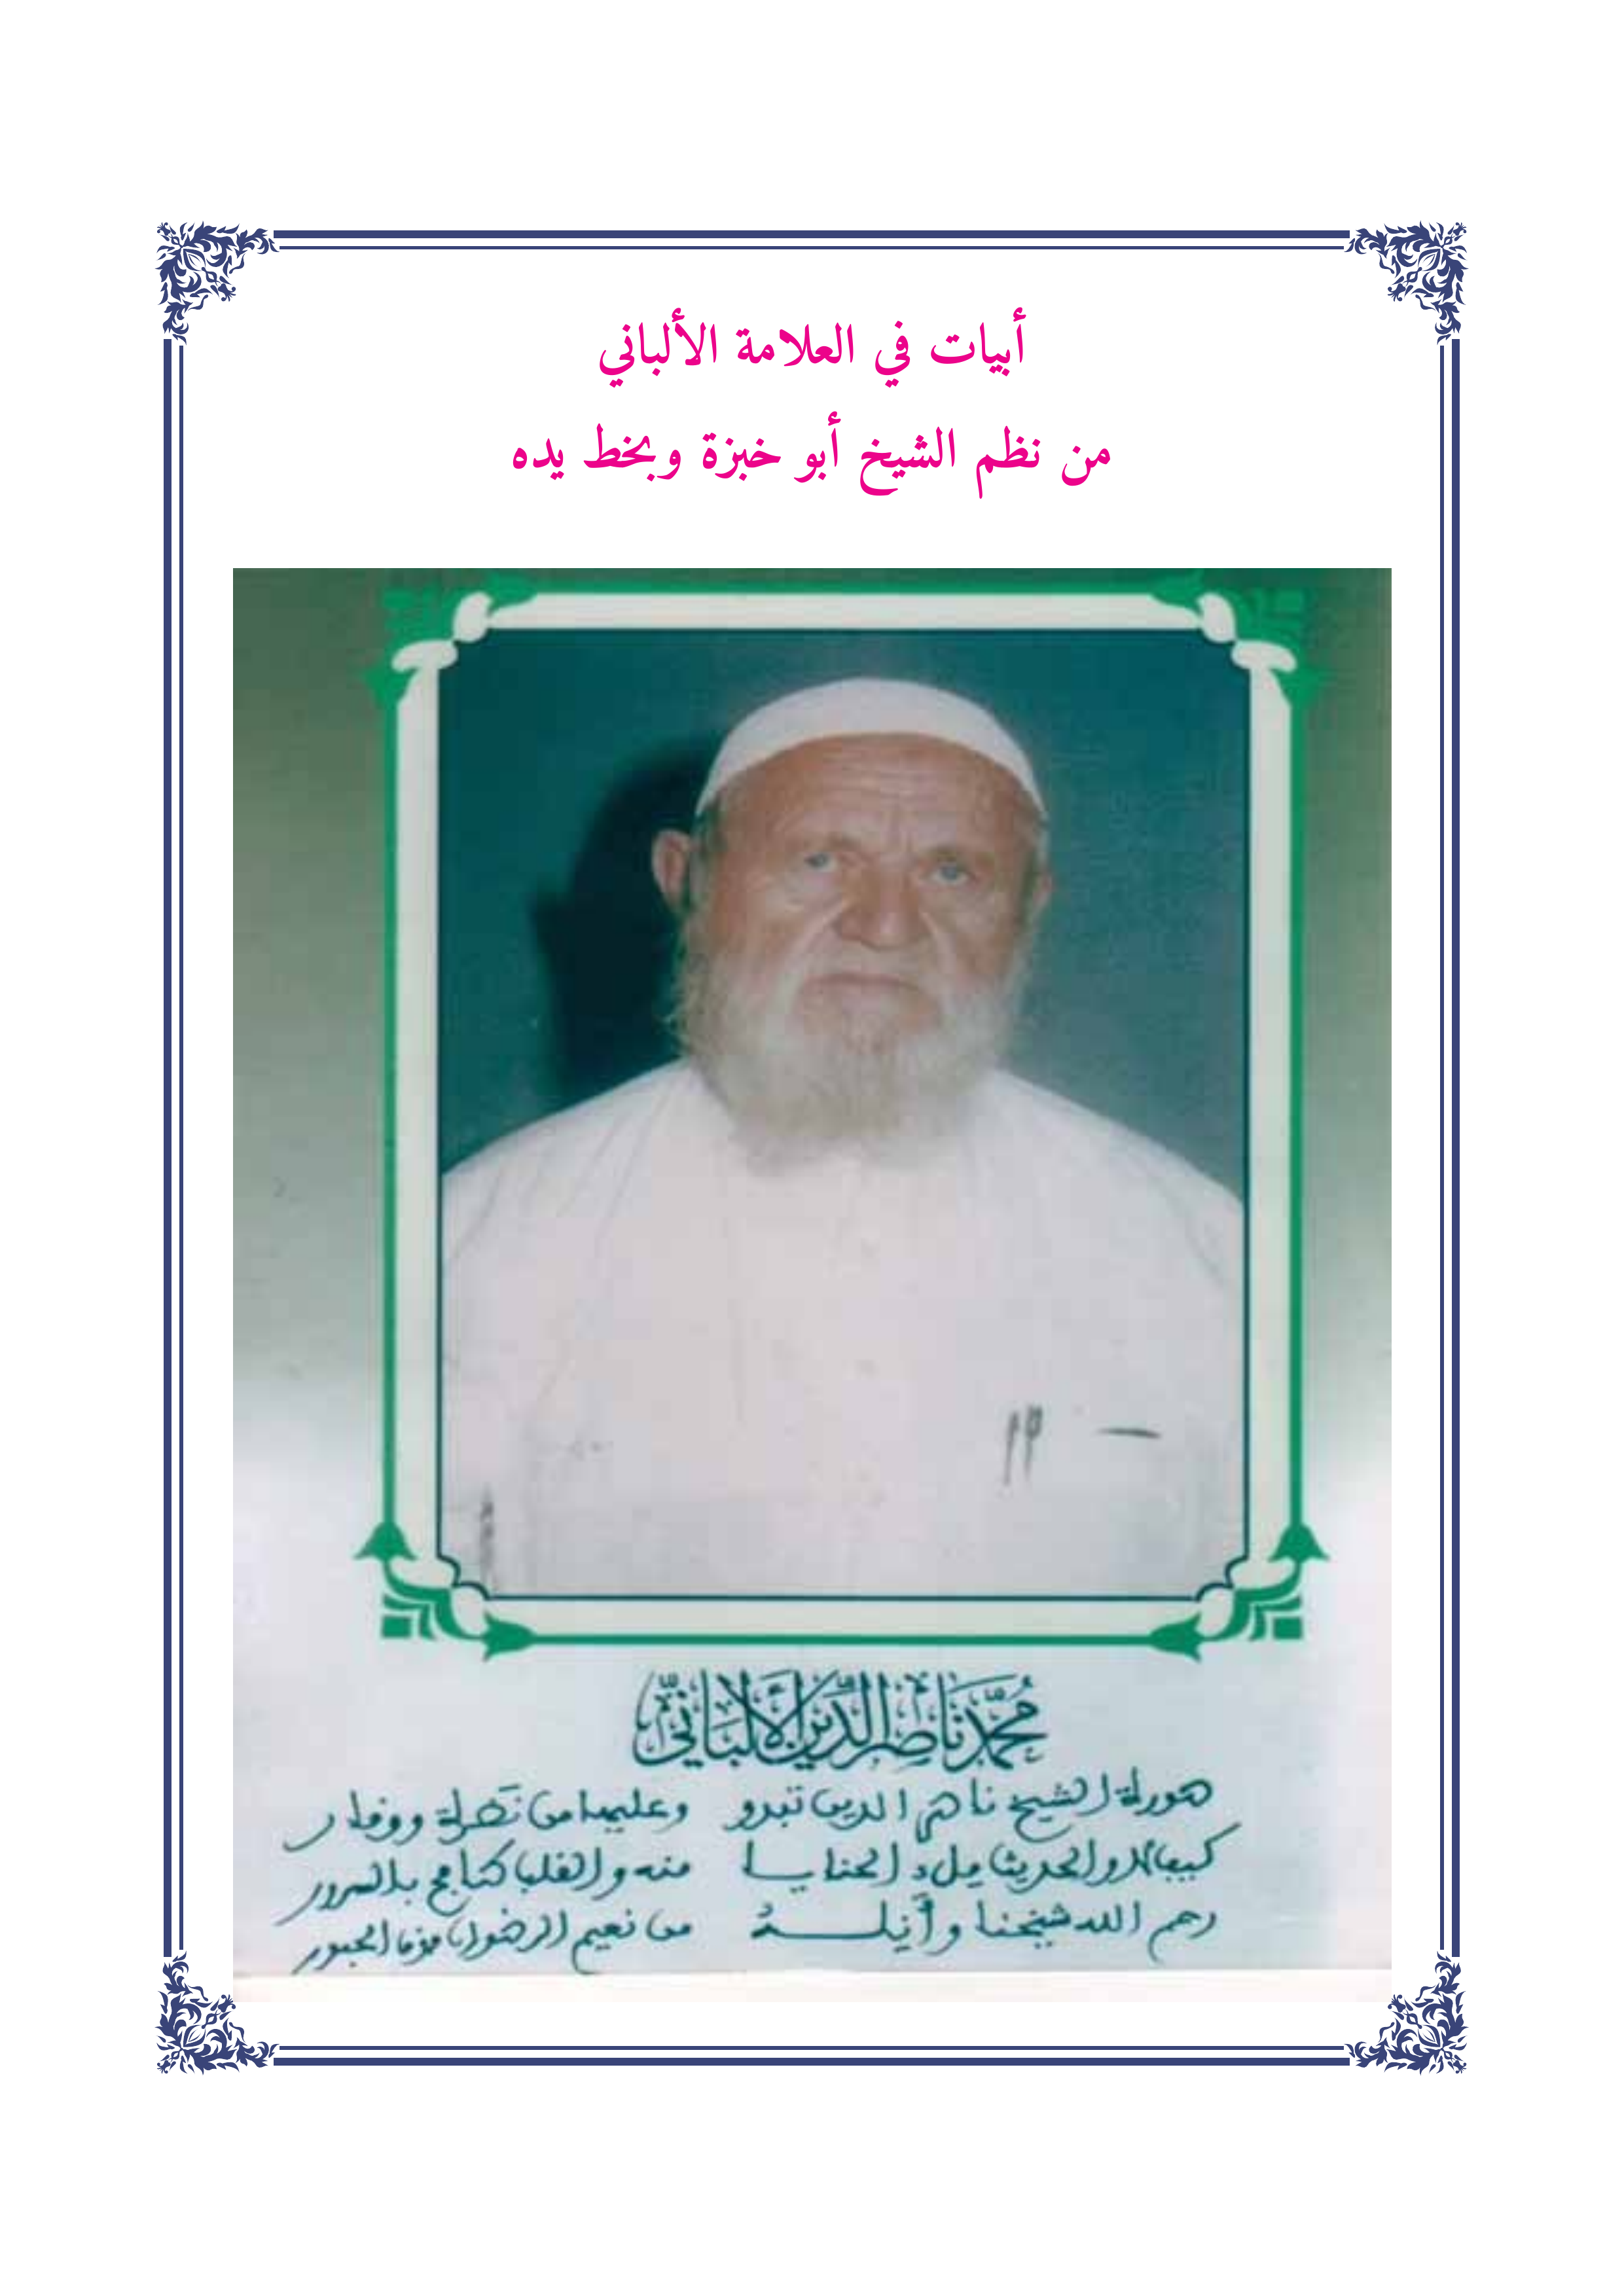 أبيات في العلامة الألباني
من نظم الشيخ أبو خبزة وبخط يده
مُحَمَّد نَاصِر الدِّين الأَلْبَانِيّ
صورة الشيخ ناصر الدين تبدو وعليها من نَضْرة ووقار
كيف لا والحديث ملء الحنايا منه والقلب طافح بالسرور
رحم الله شيخنا وأنِلْـــهُ من نعيم الرضوان فوق الحبور